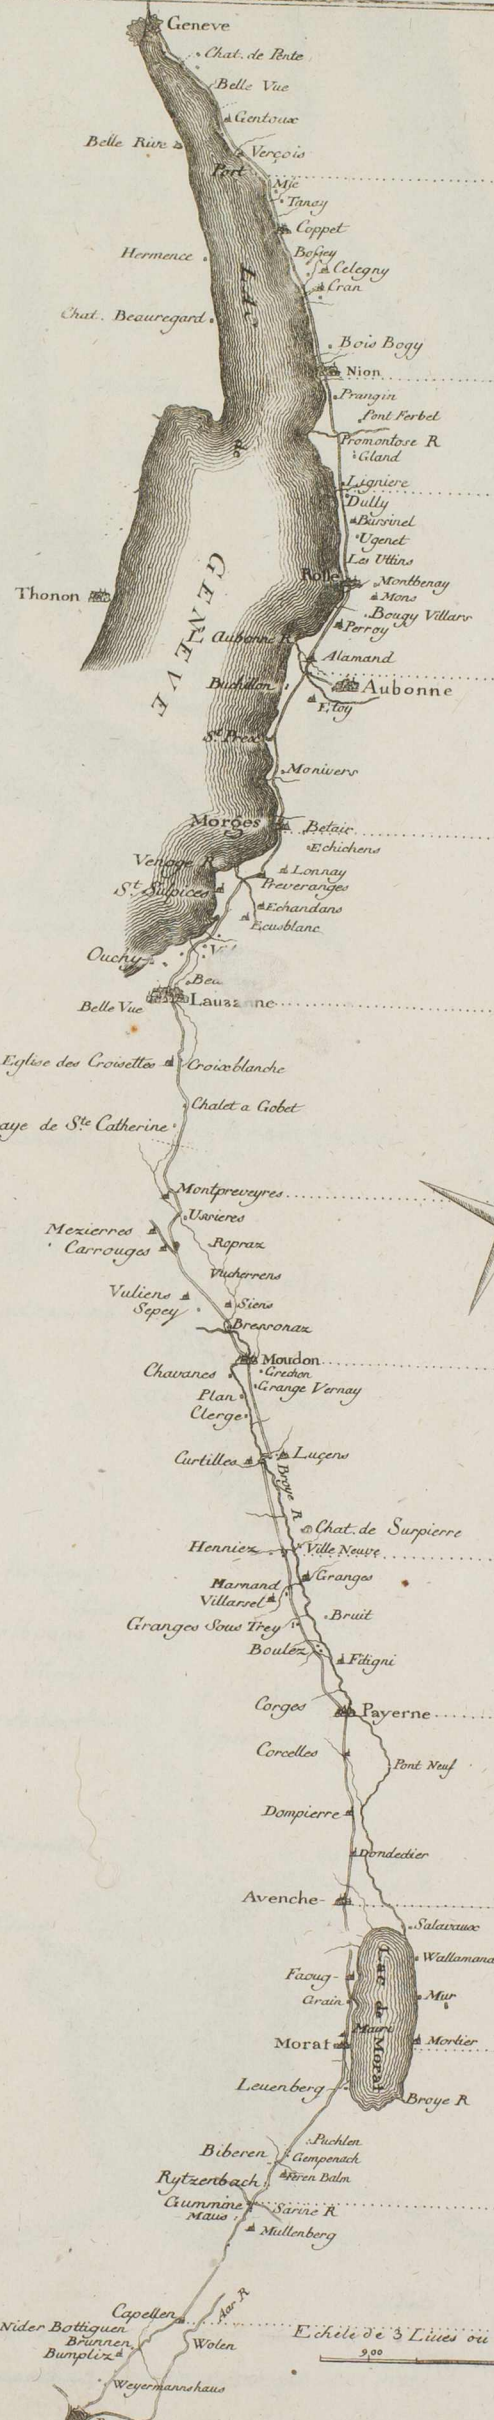 Geneve
Chat. de Pente
Belle Vue
Gentoux
Belle Rive
Verçois
Port
Mie
Tanay
Coppet
Bossey
Hermence
Celegny
Cran
Lac
Chat. Beauregard
Bois Bogy
Nion
Prangin
Pont Ferbet
Promontose R
de
Gland
Ligniere
Dully
Bursinel
Ugenet
Les Uttins
GENEVE
Rolle
Montbenay
Thonon
Mons
Bougy Villars
Perroy
Aubonne R
Alamand
Buchillon
Aubonne
Etoy
St. Prex
Monivers
Morges
Betair
Echichens
Venoge R
Lonnay
Preveranges
St. Sulpices
Echandans
Ecusblanc
Ouchy
Lauzanne
Belle Vue
Eglise des Croisettes
Croixblanche
Chalet a Gobet
aye de Ste. Catherine
Montpreveyres
Ussieres
Mezierres
Ropraz
Carrouges
Vucherrens
Vuliens
Siens
Sepey
Bressonaz
Moudon
Chavanes
Grechon
Grange Vernay
Plan
Clerge
Curtilles
Luçens
Broye R
Chat. de Surpierre
Henniez
Ville Neuve
Granges
Marnand
Villarsel
Bruit
Granges Sous Trey
Boulez
Fitigni
Corges
Payerne
Corcelles
Pont Neuf
Dompierre
Dondedier
Avenche
Salavaux
Lac de Morat
Wallamand
Faoug
Grain
Mur
Mairi
Morat
Mortier
Leuenberg
Broye R
Puchlen
Biberen
Gempenach
Feren Balm
Rytzenbach
Gummine
Sarine R
Maus
Mullenberg
Aar R
Capellen
Nider Bottiguen
Echele de 3 Liues ou
Brunnen
Wolen
Bumpliz
900
Weyermannshaus